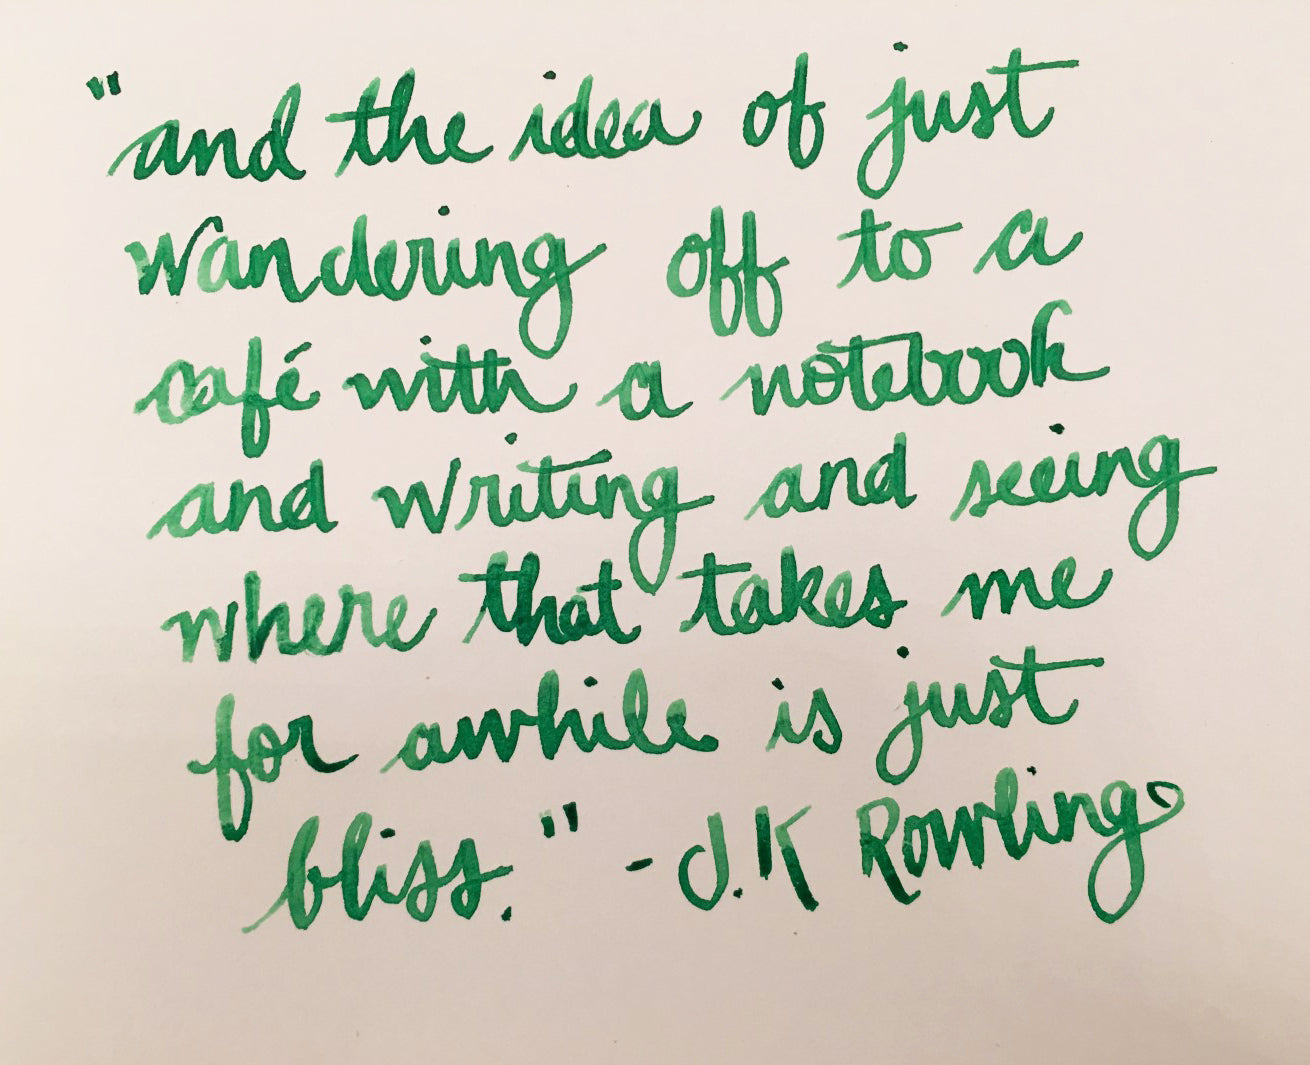 "and the idea of just
wandering off to a
café with a notebook
and writing and seeing
where that takes me
for awhile is just
bliss." - J.K Rowling